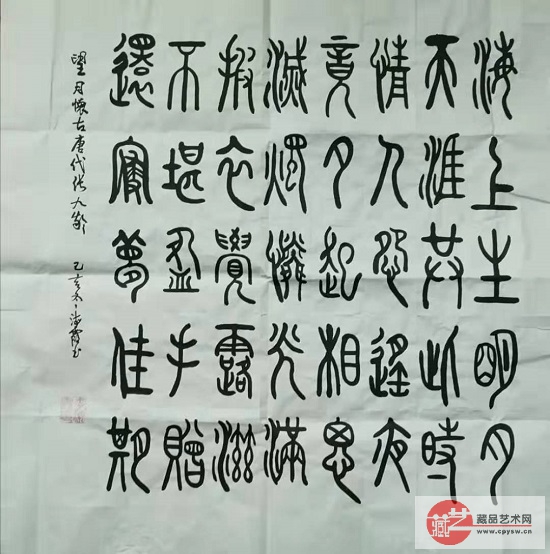 海上生明月
天涯共此時
情人怨遙夜
竟夕起相思
滅燭憐光滿
披衣覺露滋
不堪盈手贈
還寢夢佳期
望月懷古唐代张九龄
己亥冬海霞书
藏艺
藏品艺术网
www.cpysw.cn